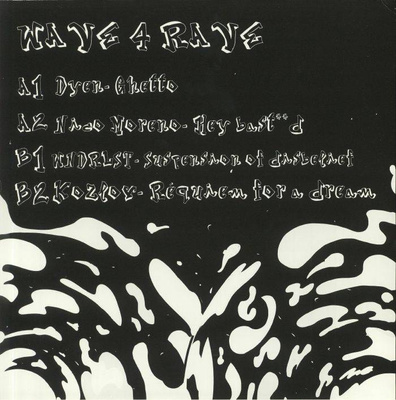 WAVE 4 RAVE
A1 Dyen - Ghetto
A2 Nado Moreno - Hey bast**d
B1 KNDRLST - Suspension of
B2 Kozlov - Requiem for a dream